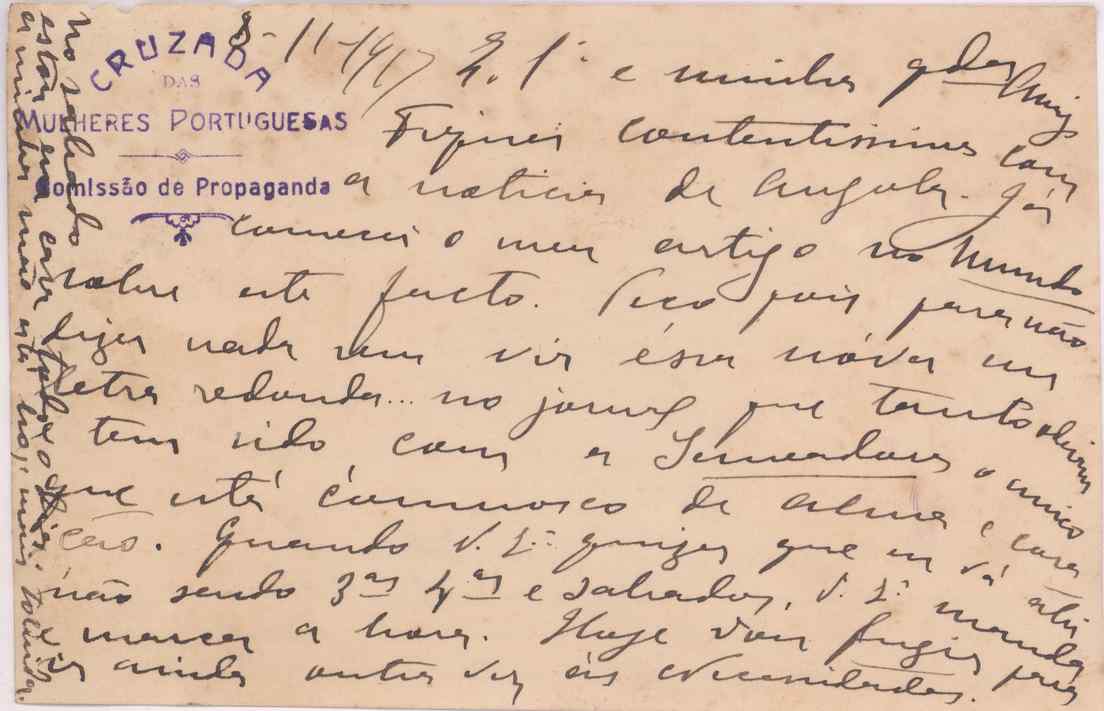 CRUZADA
DAS
MULHERES PORTUGUESAS
Comissão de Propaganda
8-11-1917 E. S.ª e minha qda Amiga
Fiquei contentissima com
a noticia de Angola. Já
comecei o meu artigo no Mundo
sobre este facto. Peço pois para não
dizer nada sem vir ésse nóva em
letra redonda... no jornal que tanto
tem sido com a Semeadora o unico
que está comnosco de alma e cora
ção. Quando V. E.ª quizer que eu vá ahi
não sendo 3as 4as e sabados, V. E.ª manda
marcar a hora. Hoje vou fugir para
ir ainda outra vez ás Necessidades.
No sabado
estou em casa todo o dia.
a minha mão está hoje mais